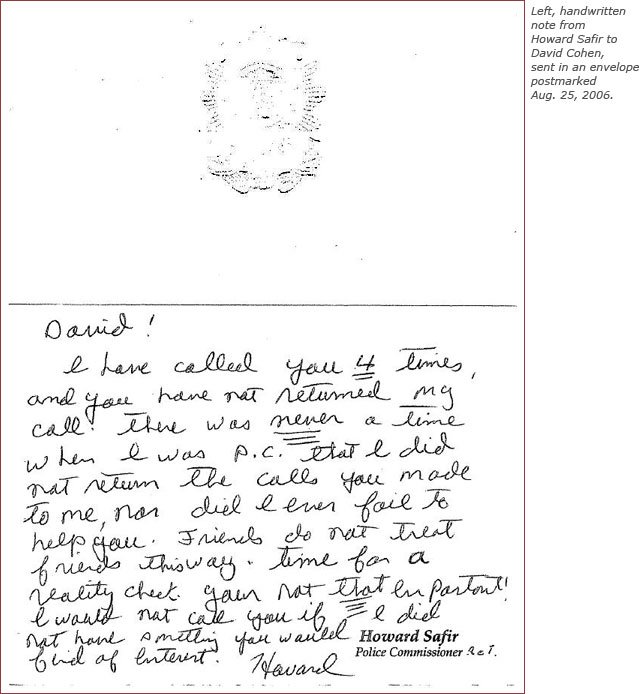 Left, handwritten
note from
Howard Safir to
David Cohen,
sent in an envelope
postmarked
Aug. 25, 2006.
David!
I have called you 4 times,
and you have not returned my
call. There was never a time
when I was P.C. that I did
not return the calls you made
to me, nor did I ever fail to
help you. Friends do not treat
friends this way. Time for a
reality check. Your not that Important!
I would not call you if I did
not have something you would
find of Interest.
Howard
Howard Safir
Police Commissioner Ret.